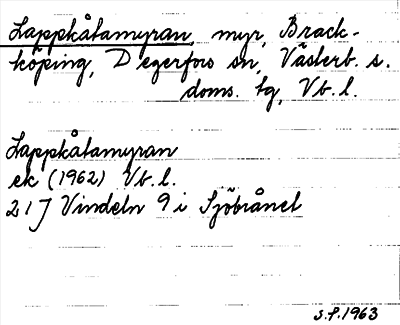 Lappkåtamyran, myr, Brack-
köping, Degerfors sn, Västerb. s.
doms. tg, Vb. l.
Lappkåtamyran
ek (1962) Vb. l.
21J Vindeln 9 i Sjöbrånet
S.F. 1963